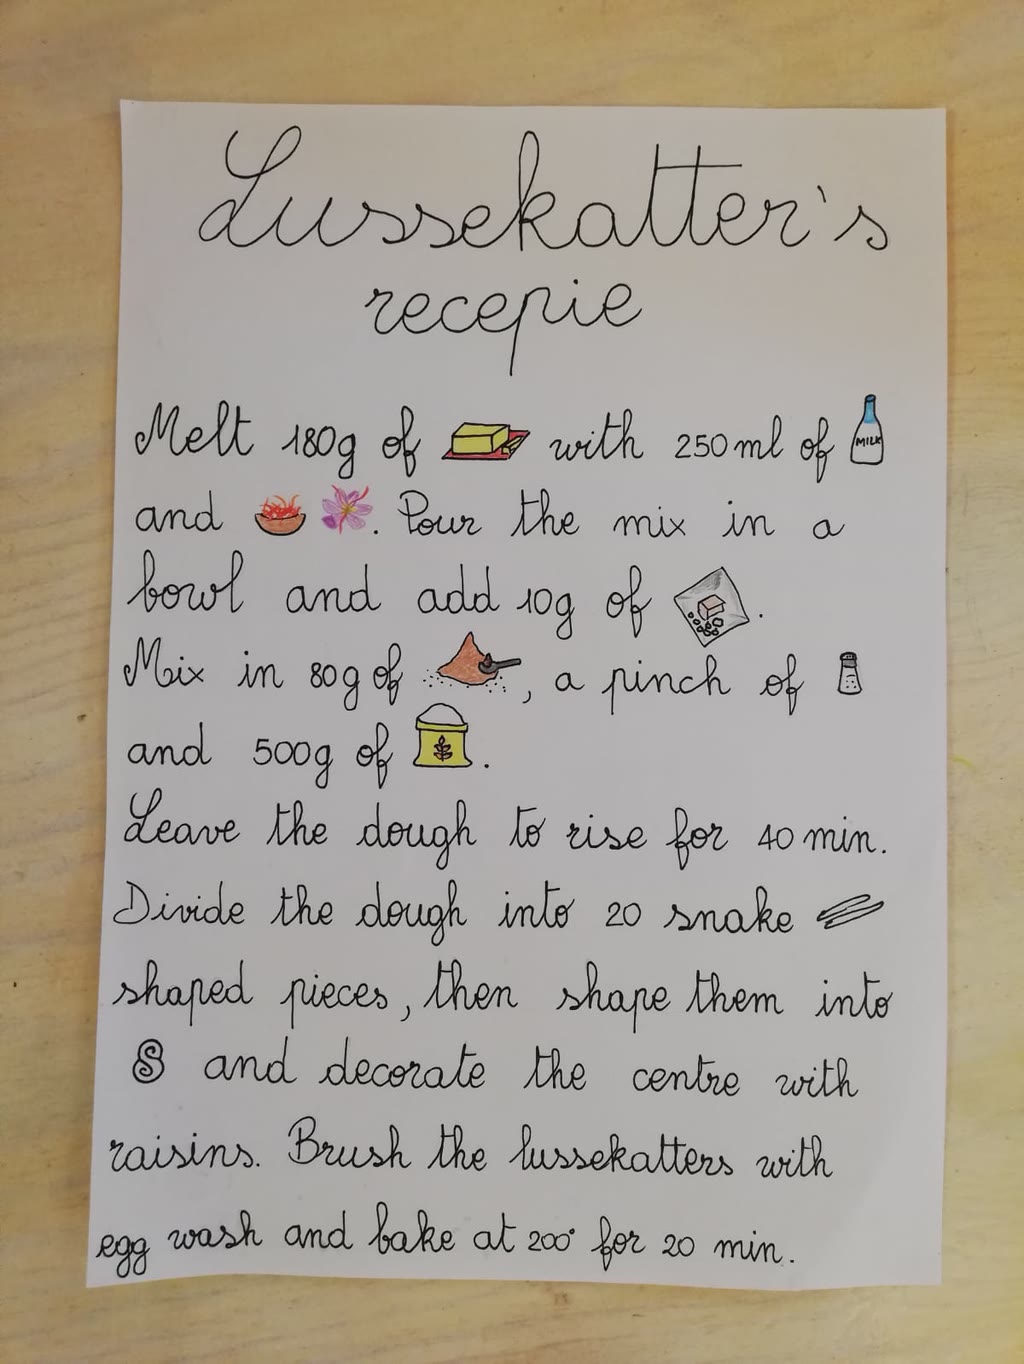 Lussekatter's
recepie
Melt 180g of with 250ml of MILK
and . Pour the mix in a
bowl and add 10g of .
Mix in 80g of , a pinch of
and 500g of .
Leave the dough to rise for 40 min.
Divide the dough into 20 snake
shaped pieces, then shape them into
S and decorate the centre with
raisins. Brush the lussekatters with
egg wash and bake at 200° for 20 min.